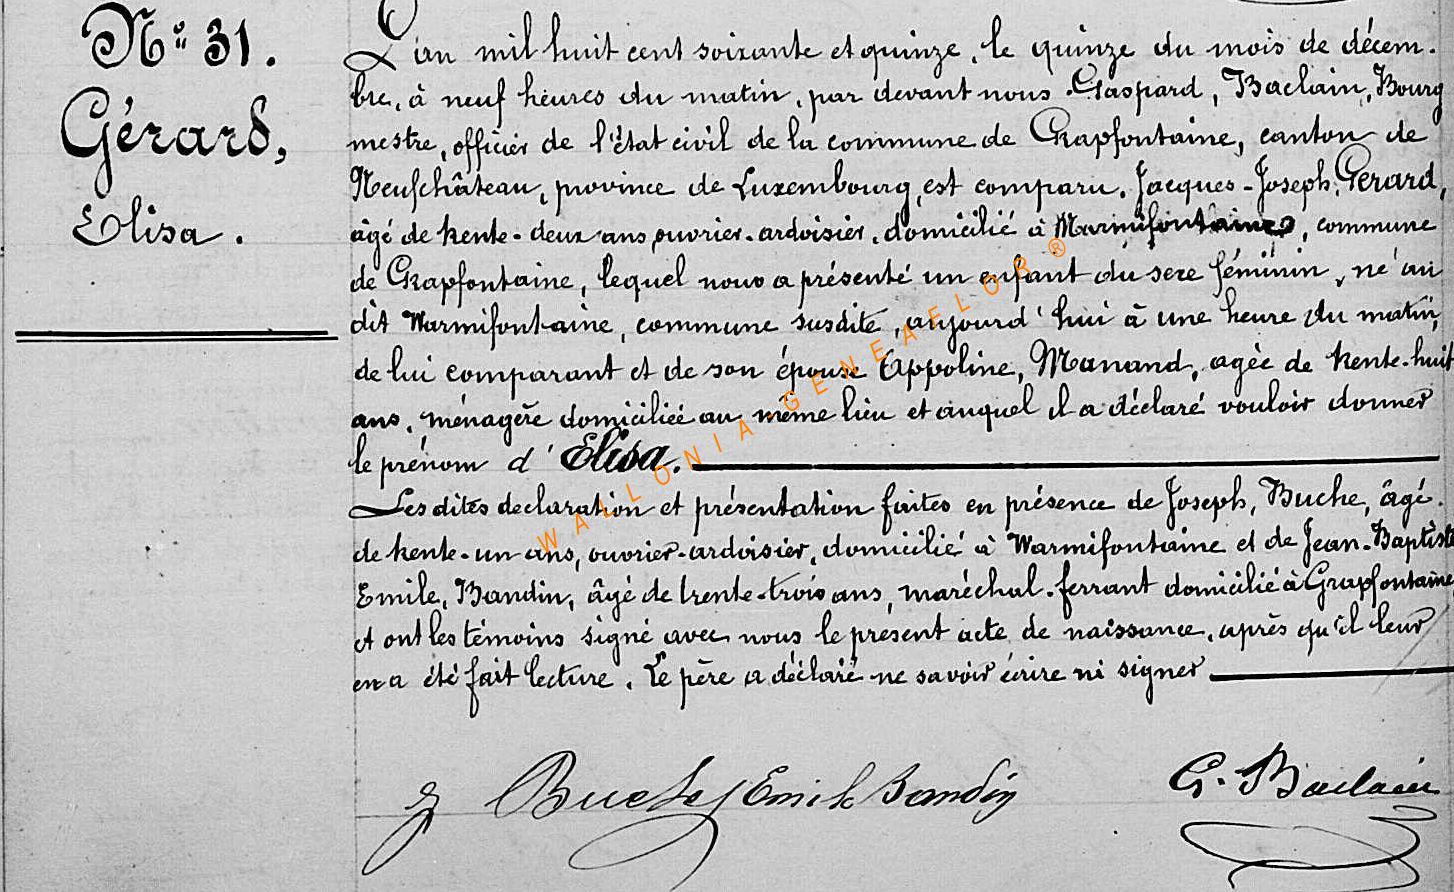 N° 31.
Gérard,
Elisa.
L'an mil huit cent soixante et quinze, le quinze du mois de décem-
bre, à neuf heures du matin, par devant nous Gaspard, Baclain, Bourg
mestre, officier de l'état civil de la commune de Grapfontaine, canton de
Neufchâteau, province de Luxembourg, est comparu, Jacques-Joseph, Gerard,
âgé de trente-deux ans, ouvrier-ardoisier, domicilié à Warmifontaine, commune
de Grapfontaine, lequel nous a présenté un enfant du sexe féminin, né au
dit Warmifontaine, commune susdite, aujourd'hui à une heure du matin,
de lui comparant et de son épouse Appoline, Manand, agée de trente-huit
ans, ménagère domiciliée au même lieu et auquel il a déclaré vouloir donner
le prénom d'Elisa.
Les dites declaration et présentation faites en présence de Joseph, Buche, âgé
de trente-un ans, ouvrier-ardoisier, domicilié à Warmifontaine et de Jean-Baptiste
Emile, Bandin, âgé de trente-trois ans, maréchal-ferrant domicilié à Grapfontaine
et ont les témoins signé avec nous le présent acte de naissance, après qu'il leur
en a été fait lecture. Le père a déclaré ne savoir écrire ni signer
J Buche Emile Bandin G. Baclain
WALLONIA-GENEAFLOR®